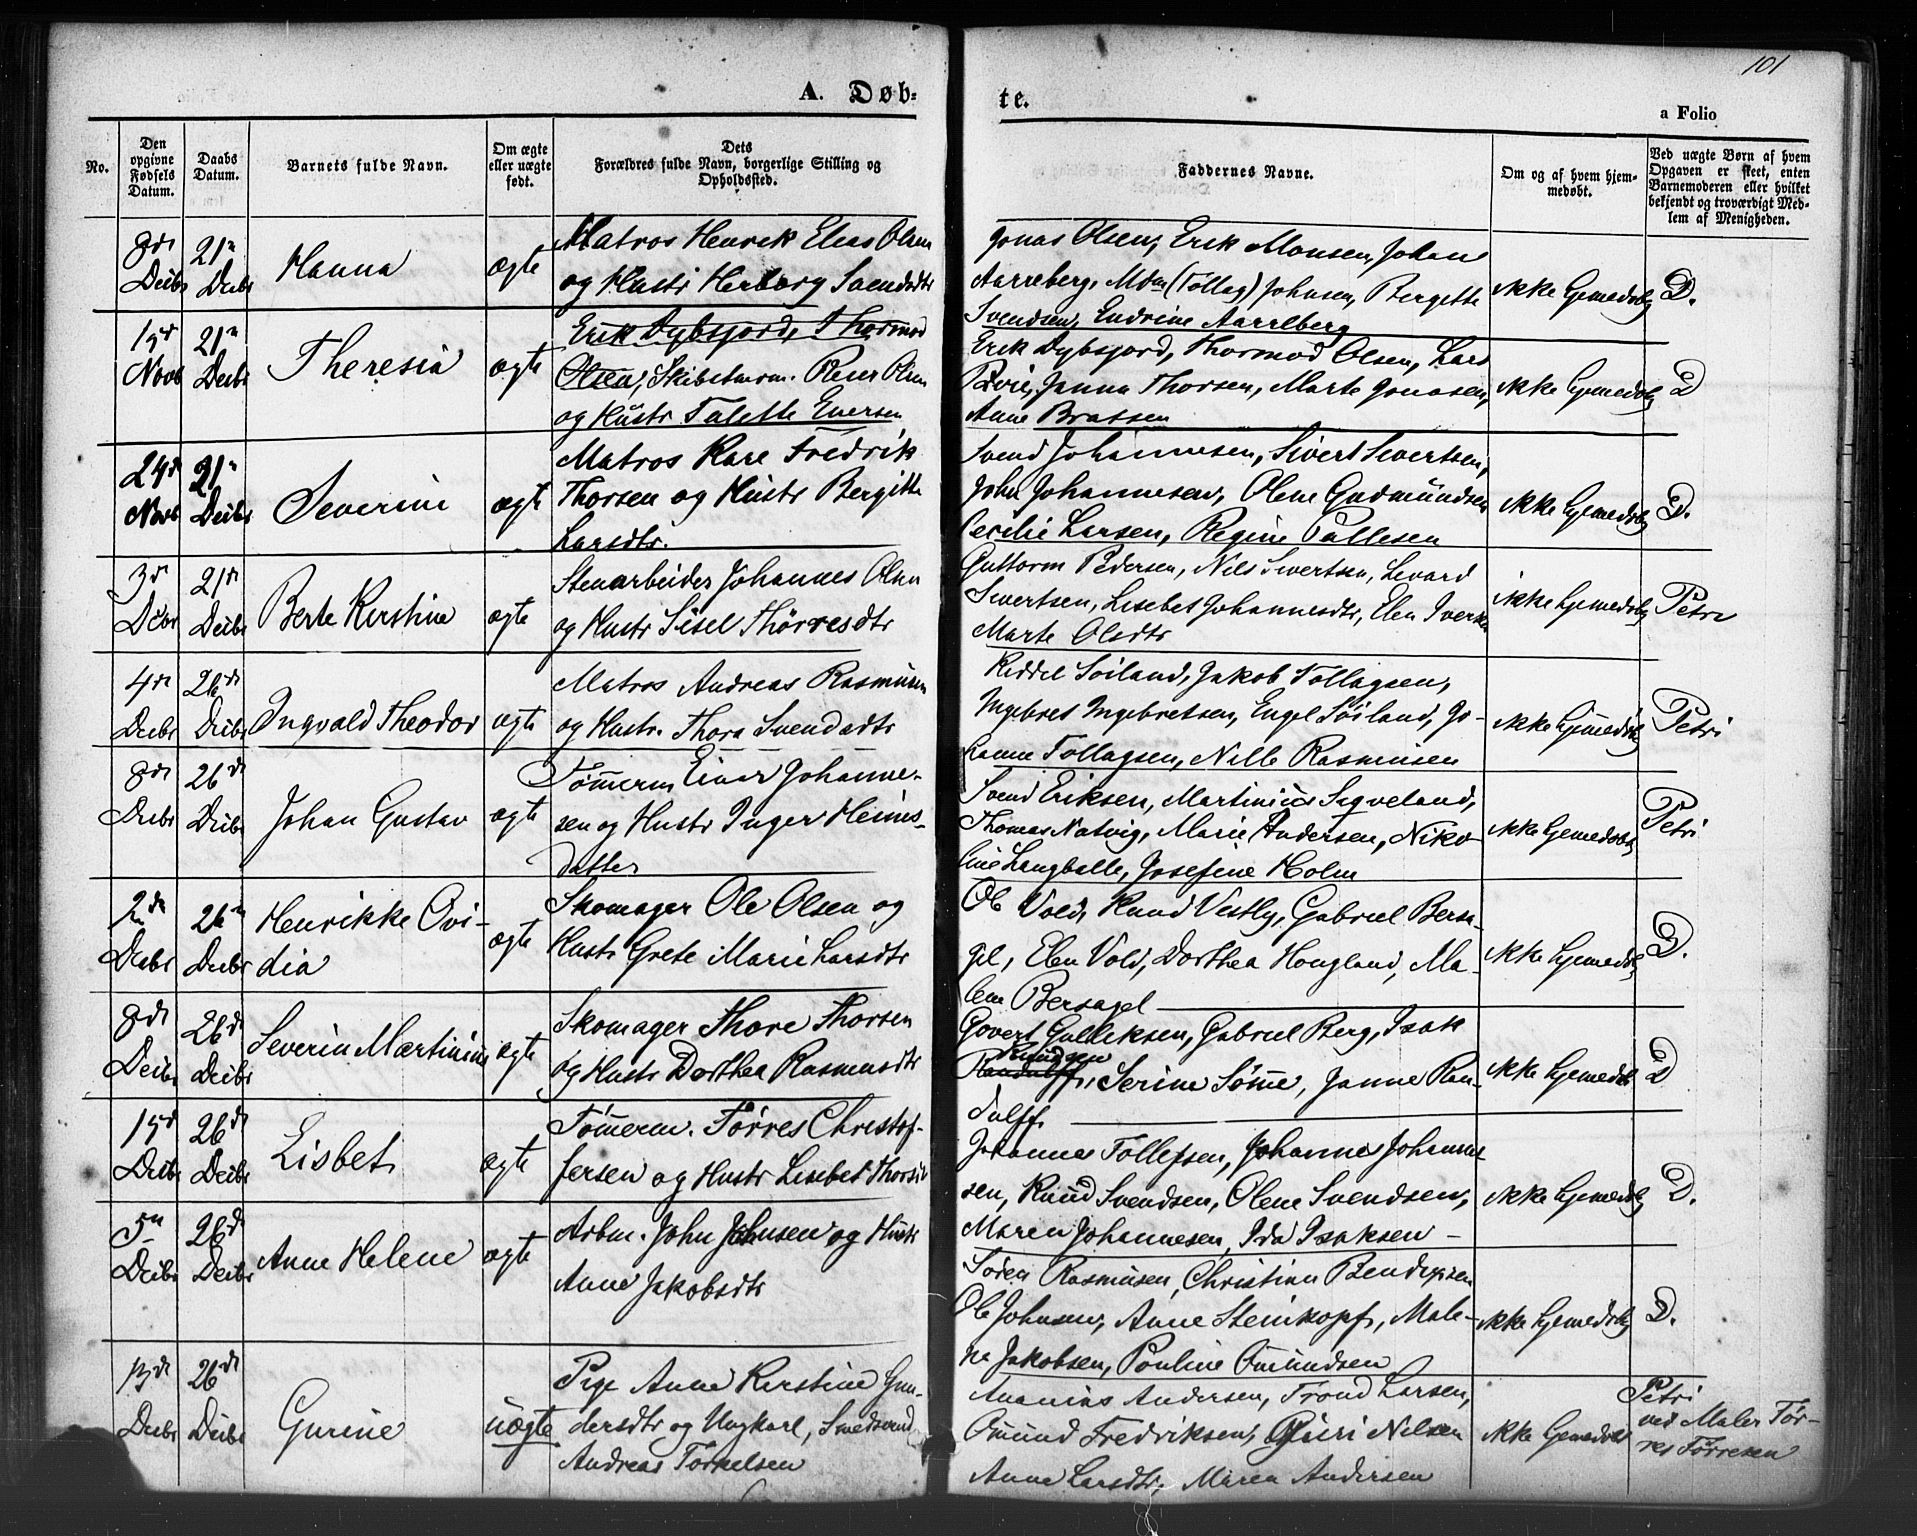 101
A. Døb=
te.
a Folio
No.
Den opgivne Fødsels Datum.
Daabs Datum.
Barnets fulde Navn.
Om ægte eller uægte født.
Dets Forældres fulde Navn, borgerlige Stilling og Opholdssted.
Faddernes Navne.
Om og af hvem hjem-
medøbt.
Ved uægte Børn af hvem
Opgaven er skeet, enten
Barnemoderen eller hvilket
bekjendt og troværdigt Med-
lem af Menigheden.
8de Decbr
21n Decbr
Hanna
ægte
Matros Henrik Elias Olsen
og Hustr Herborg Svendsdtr
Jonas Olsen, Erik Monsen, Johan
Aarreberg, Mdm (Tollag) Johnsen, Bergette
Svendsen, Endrine Aarreberg
ikke hjemedøbt
D.
15d Novb
21n Decbr
Theresia
ægte
Erik Dybsjord, Thormod
Olsen, Skibstmrm. Reier Olsen
og Hustr Talette Eversen
Erik Dybsjord, Thormod Olsen, Lars
Janna Thorsen, Marte Jonasen,
Anne Brattsen
ikke hjemedøbt
D
24d Novb
21n Decbr
Severine
ægte
Matros Kare Fredrik
Thorsen og Hustr Bergitte
Larsdtr.
Svend Johannesen, Sivert Sivertsen,
John Johannesen, Olene Gudmundsen
Cecilie Larsen, Regine Pallesen
ikke hjemedøbt
D.
3d Dcbr
21d Decbr
Berte Kirstine
ægte
Stenarbeider Johannes Olsen
og Hustr Sisel Thørresdtr
Guttorm Pedersen, Nils Sivertsen, Sevard
Sivertsen, Lisebet Johannesdtr, Elen Iversen
Marte Olsdtr
ikke hjemedøbt
Petri
4de Decbr
26de Decbr
Ingvald Theodor
ægte
Matros Andreas Rasmusen
og Hustr. Thora Svendsdtr
Reddel Soiland, Jakob Tollagsen,
Ingebret Ingebretsen, Engel Soiland, Jo-
hanne Tollagsen, Nille Rasmusen
ikke hjemedøbt
Petri
8de Decbr
26d Decbr
Johan Gustav
ægte
Tømerm. Einar Johanne-
sen og Hustr Inger Heines-
datter
Svend Eriksen, Martinius Sigveland,
Thomas Natvig, Marie Andersen, Niko-
line Langballe, Josefine Holm
ikke hjemedøbt
Petri
2de Decbr
26n Decbr
Henrikke Ovi-
dia
ægte
Skomager Ole Olsen og
Hustr Grete Marie Larsdtr
Ole Vold, Knud Vestly, Gabriel Bersa-
gel, Elen Vold, Dorthea Hougland, Ma-
lene Bersagel
ikke hjemedøbt
D.
8de Decbr
26d Decbr
Severin Martinius
ægte
Skomager Thore Thorsen
og Hustr Dorthea Rasmusdtr
Govert Gulliksen, Gabriel Berg, Isak
Knudsen
Randulff, Serine Sømme, Janne Ran-
dulff.
ikke hjemedøbt
D
15d Decbr
26d Decbr
Lisbet
ægte
Tømerm. Tørres Christof-
fersen og Hustr Lisebet Thorsdtr
Johannes Tollefsen, Johannes Johannes-
sen, Knud Svendsen, Olene Svendsen,
Maren Johannesen, Ida Isaksen
ikke hjemedøbt
D.
5n Decbr
26d Decbr
Anne Helene
ægte
Arbm. John Johnsen og Hustr
Anne Jakobsdtr
Søren Rasmusen, Christian Bendixsen
Ole Johnsen, Anne Steinkopf, Male-
ne Jakobsen, Pauline Omundsen
ikke hjemedøbt
D.
13de Decbr
26de Decbr
Gurine
uægte
Pige Anne Kirstine Gun-
dersdtr og Ungkarl, Smedsvend
Andreas Torkelsen
Ananias Andersen, Trond Larsen,
Omund Fredriksen, Guri Nilsen
Anne Larsdtr, Maren Andersen
ikke hjemedøbt
Petri
ved Maler Tør-
res Tørresen